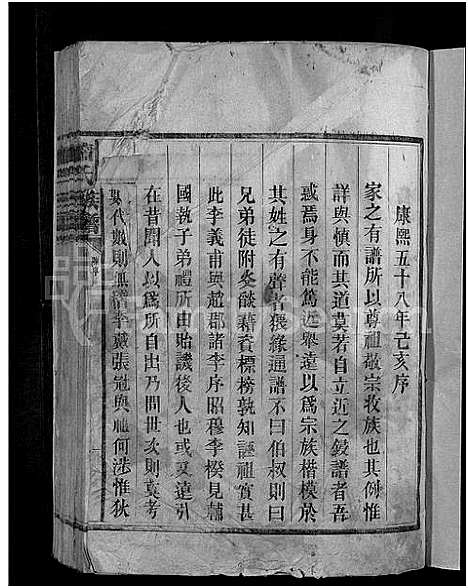 康熙五十八年己亥序
家之有譜所以尊祖敬宗收族也其例惟
詳與慎而其道莫若自立近之鋟譜者吾
惑焉身不能篤近舉遠以為宗族楷模於
其姓之有聲者猥緣通譜不曰伯叔則曰
兄弟徒附炎餤藉資標榜孰知誣祖實甚
此李義甫與趙郡諸李序昭穆李揆見輔
國執子弟禮所由貽譏後人也或夐遠引
在昔聞人以為所自出乃問世次則莫考
數代數則無徵李戴張冠與祂何涉惟狄
氏族譜